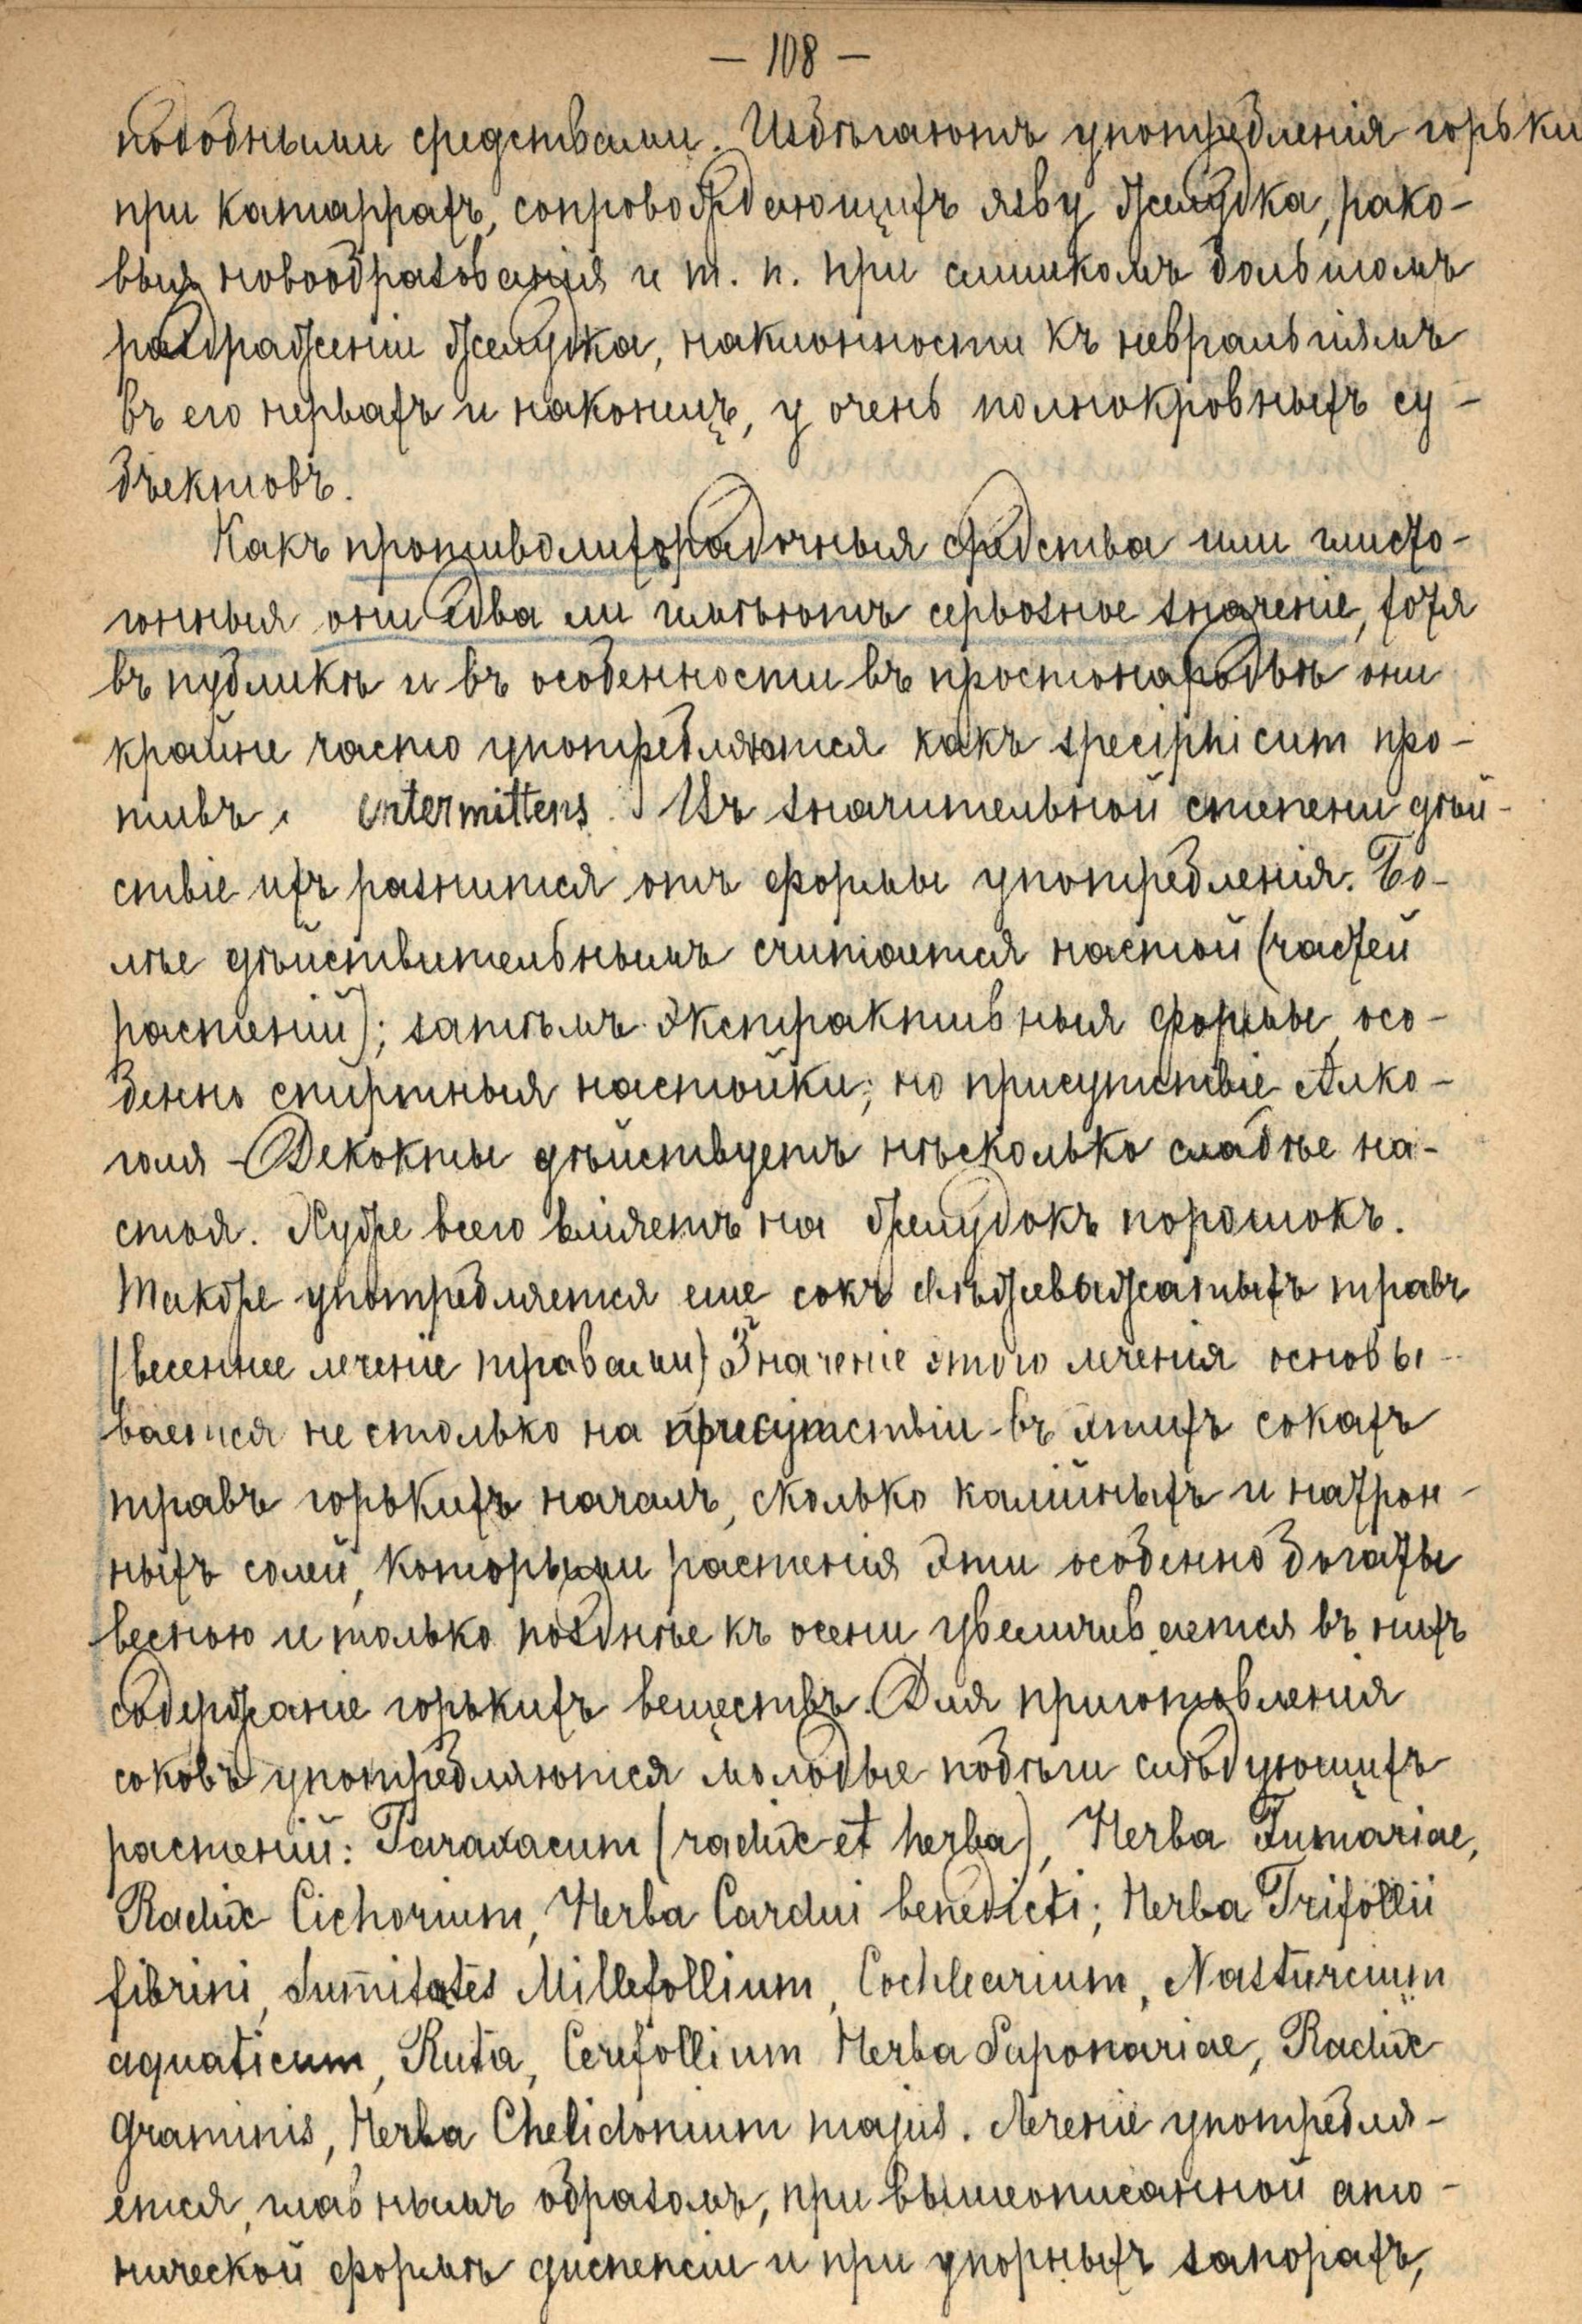 — 108 —
подобными средствами. Избѣгаютъ употребленія горьки
при катаррахъ, сопровождающихъ язву желудка, рако-
выя новообразованія и т. п. при слишкомъ большомъ
раздраженіи желудка, наклонности къ невральгіямъ
въ его нервахъ и наконецъ, у очень полнокровныхъ су-
бъектовъ.
Какъ противолихорадочныя средства или глисто-
гонныя они едва ли имѣютъ серьозное значеніе, хотя
въ публикѣ и въ особенности въ простонародьѣ они
крайне часто употребляются какъ speciphicum про-
тивъ intermittens. Въ значительной степени дѣй-
ствіе ихъ разнится отъ формы употребленія. Бо-
лѣе дѣйствительнымъ считается настой (частей
растеній); затѣмъ экстрактивныя формы, осо-
бенно спиртныя настойки; но присутствіе Алко-
голя - Декокты дѣйствуетъ нѣсколько слабѣе на-
стоя. Хуже всего вліяетъ на желудокъ порошокъ.
Также употребляется еще сокъ свѣжевыжатыхъ травъ
(весеннее леченіе травами) Значеніе этого леченія основы-
вается не столько на присутствіи въ этихъ сокахъ
травъ горькихъ началъ, сколько калійныхъ и натрон-
ныхъ солей, которыми растенія эти особенно богаты
весною и только позднѣе къ осени увеличивается въ нихъ
содержаніе горькихъ веществъ. Для приготовленія
соковъ употребляются молодые побѣги слѣдующихъ
растеній: Taraxacum (radix et herba), Herba Fumariae,
Radix Cichorium, Herba Cardui benedicti; Herba Trifollii
fibrini, Summitates Millefollium, Cochlearium, Nasturcium
aquaticum, Ruta, Cerefollium Herba Saponariae, Radix
Graminis, Herba Chelidonium majus. Леченіе употребля-
ется, главнымъ образомъ, при вышеописанной ато-
нической формѣ диспепсіи и при упорныхъ запорахъ,